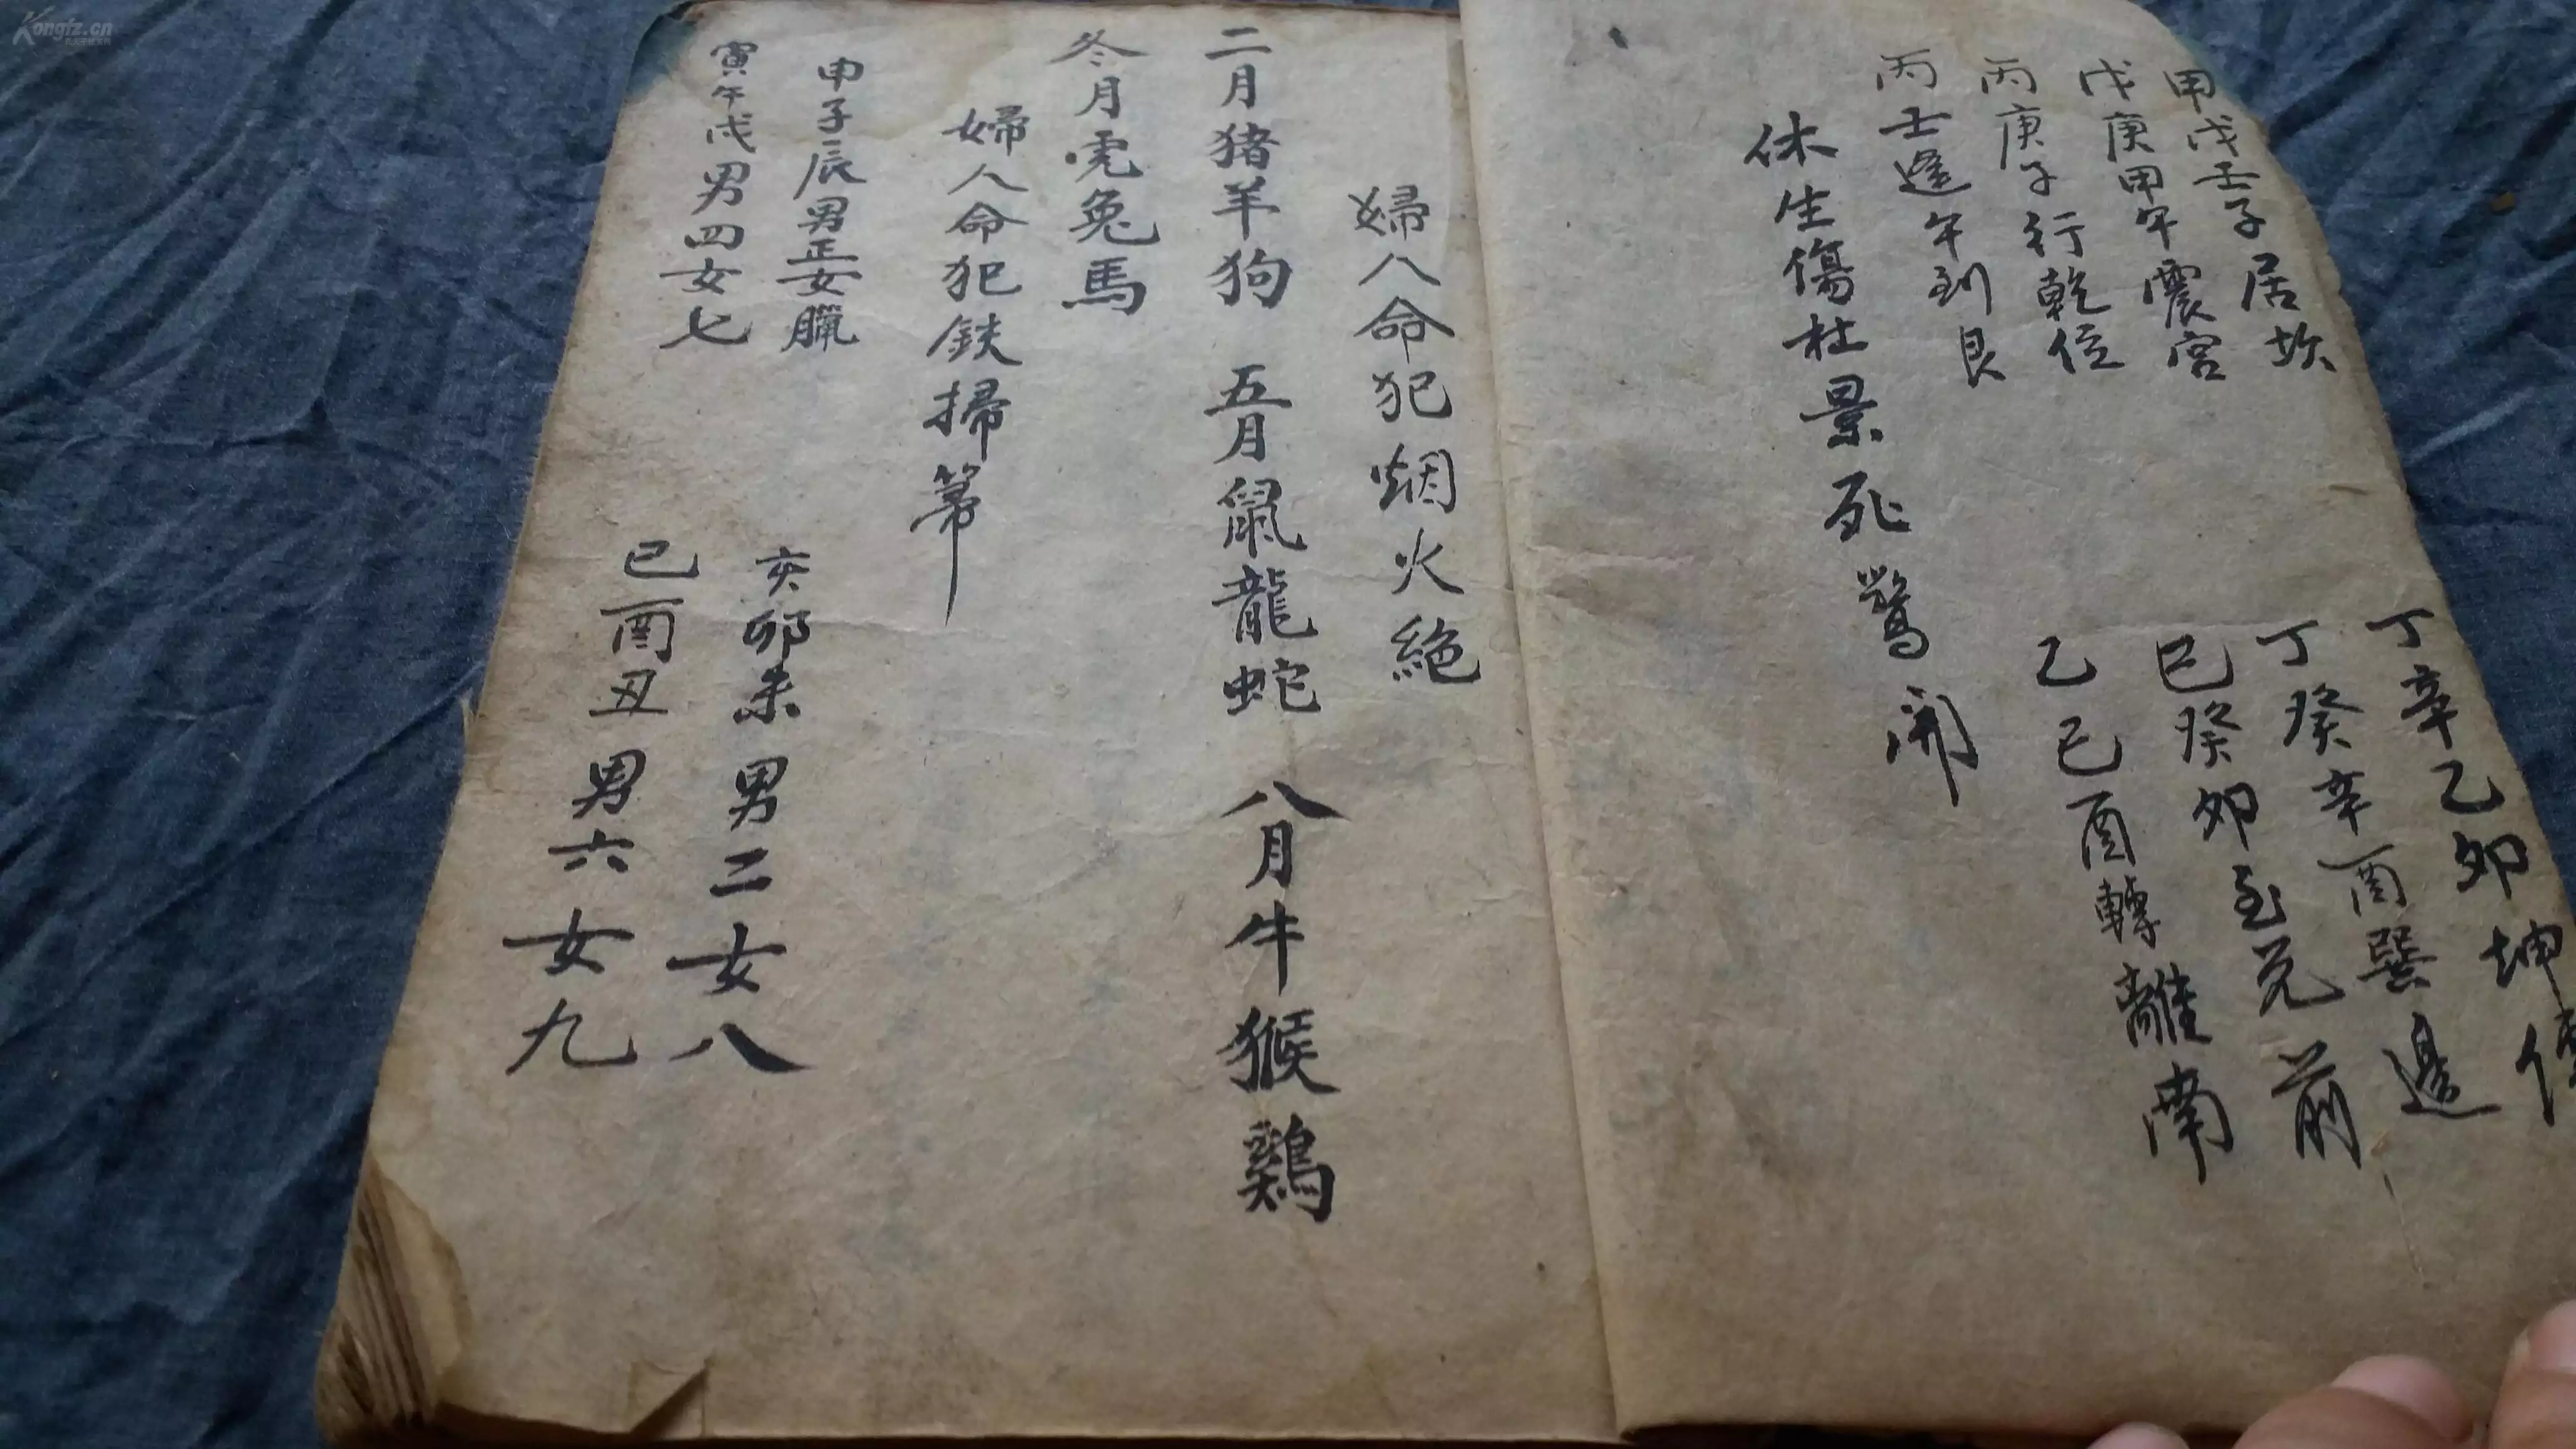 甲戊壬子居坎
丁辛乙卯坤
戊庚甲午震宮
丁癸辛酉巽邊
丙庚子行乾位
己癸卯至兌前
丙壬逢午到艮
乙己酉轉離南
休生傷杜景死驚開
婦人命犯烟火絕
二月猪羊狗 五月鼠龍蛇 八月牛猴鷄
冬月虎兔馬
婦人命犯鉄掃箒
申子辰男正女臘
亥卯未男二女八
寅午戌男四女七
巳酉丑男六女九
Kongfz.cn